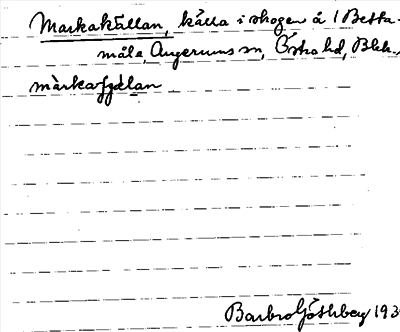 Markakällan, källa i skogen å 1 Betta-
måla, Augerums sn, Östra hd, Blek.
màrkaçälan
Barbro Göthberg 193